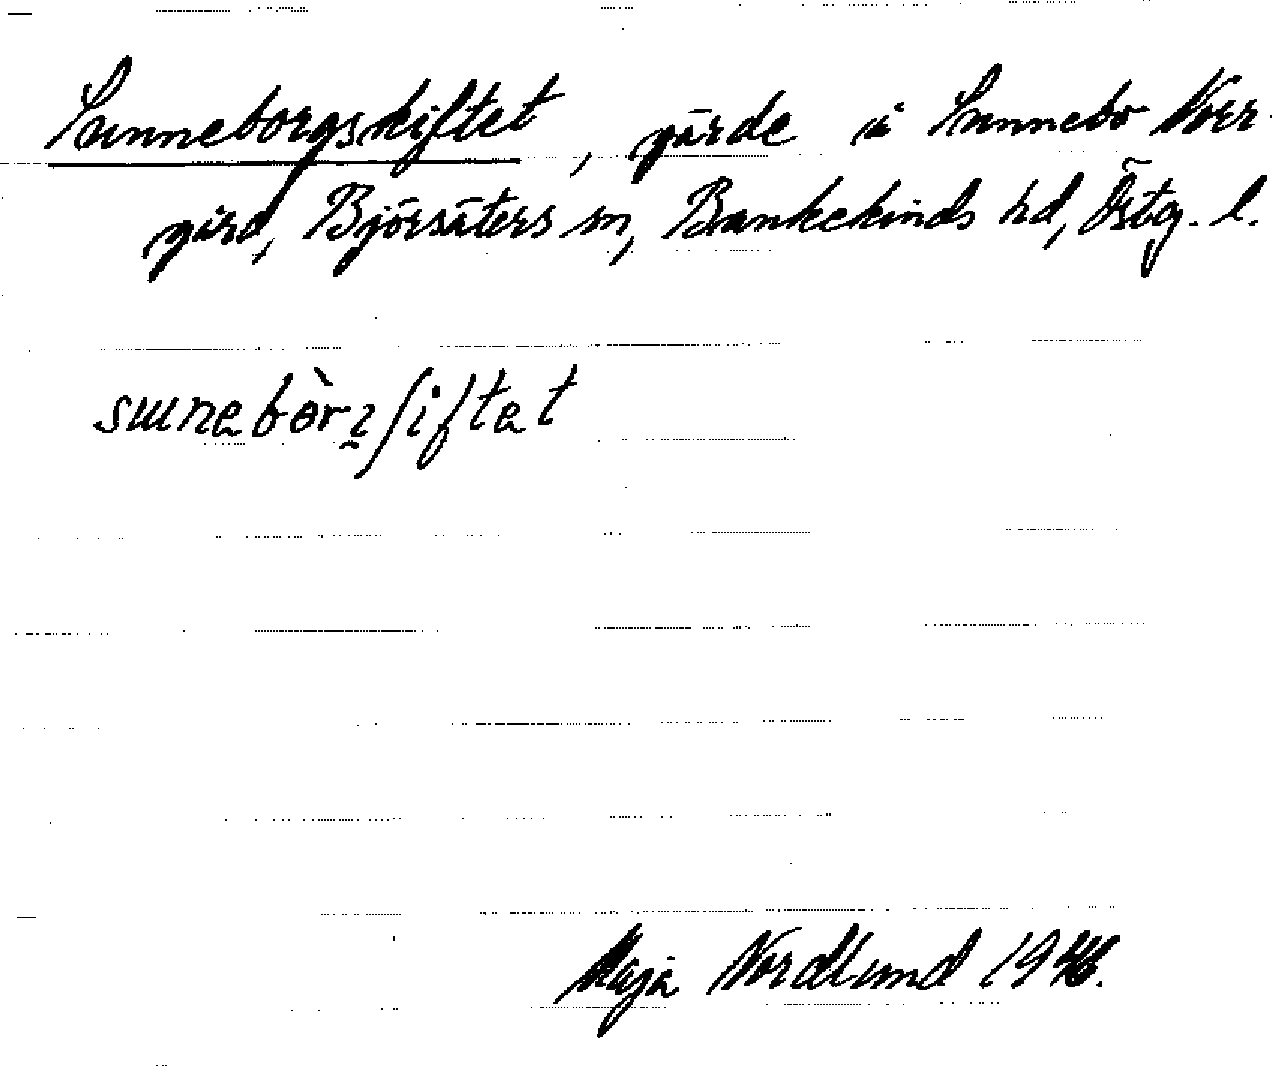 Sunneborgskiftet, gärde å Sunnebo Norr
gård, Björsäters sn, Bankekinds hd, Östg. l.
Maja Nordlund 1946.